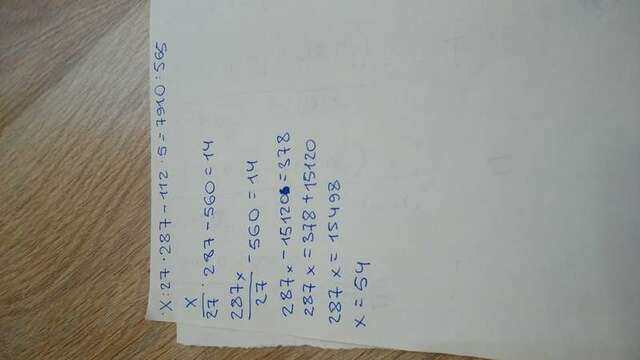 x:27·287-112·5=7910:565
x/27·287-560=14
287x/27-560=14
287x-15120=378
287x=378+15120
287x=15498
x=54